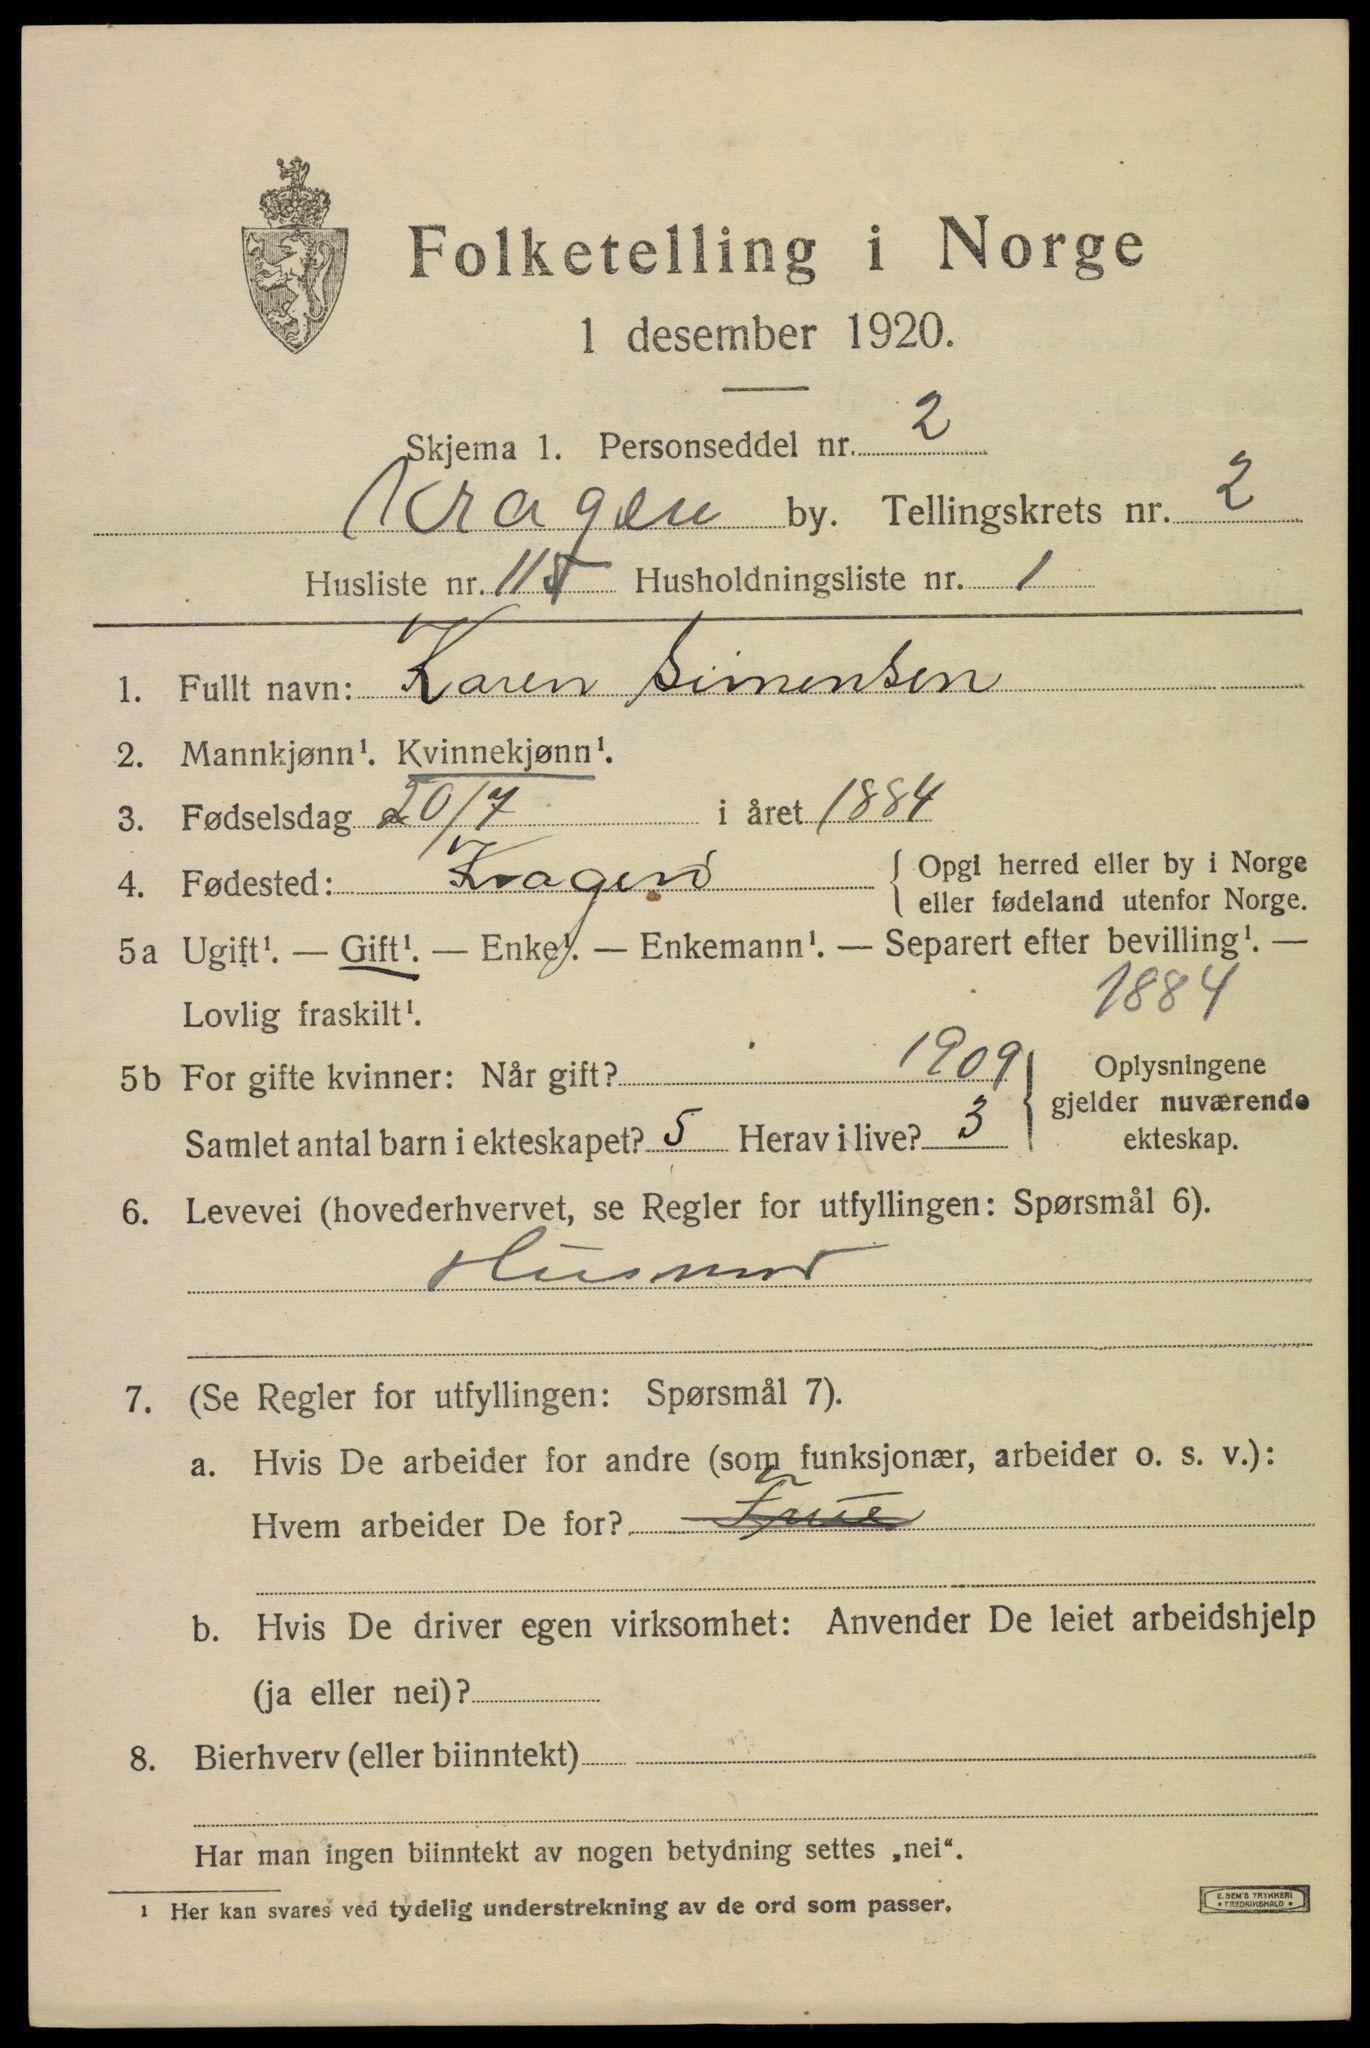 Folketelling i Norge
1 desember 1920.
Skjema 1. Personseddel nr. 2
Kragøen by. Tellingskrets nr. 2
Husliste nr. 115 Husholdningsliste nr. 1
1. Fullt navn: Karen Simensen
2. Mannkjønn¹. Kvinnekjønn¹.
3. Fødselsdag 20/7 i året 1884
4. Fødested: Kragerø { Opgi herred eller by i Norge
eller fødeland utenfor Norge.
5a Ugift¹. — Gift¹. — Enke¹. — Enkemann¹. — Separert efter bevilling¹. —
Lovlig fraskilt¹. 1884
5b For gifte kvinner: Når gift? 1909 } Oplysningene
gjelder nuværende
Samlet antal barn i ekteskapet? 5 Herav i live? 3 ekteskap.
6. Levevei (hovederhvervet, se Regler for utfyllingen: Spørsmål 6).
Husmor
7. (Se Regler for utfyllingen: Spørsmål 7).
a. Hvis De arbeider for andre (som funksjonær, arbeider o. s. v.):
Hvem arbeider De for? Frue
b. Hvis De driver egen virksomhet: Anvender De leiet arbeidshjelp
(ja eller nei)?
8. Bierhverv (eller biinntekt)
Har man ingen biinntekt av nogen betydning settes „nei“.
¹ Her kan svares ved tydelig understrekning av de ord som passer.
E. SEM'S TRYKKERI
* FREDRIKSHALD *